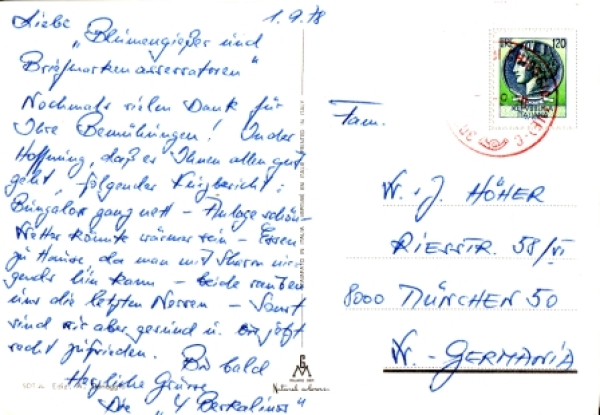 1.9.78
Liebe
„Blumengießer und
Briefmarkenasservatoren"
Nochmals vielen Dank für
Ihre Bemühungen! In der
Hoffnung, daß es Ihnen allen gut
geht, folgender Kurzbericht:
Bungalow ganz nett - Anlage schön -
Wetter könnte wärmer sein - Essen
zu Hause, da man mit
hin kann - beide rauben
uns die letzten Nerven - Sonst
sind wir aber gesund u. jetzt
recht zufrieden. Bis bald
Herzliche Grüsse
Die "4 Berkalinos"
Fam.
W.-J. HÖHER
RIESSTR. 58/VI
8000 MÜNCHEN 50
W.-GERMANIA
120